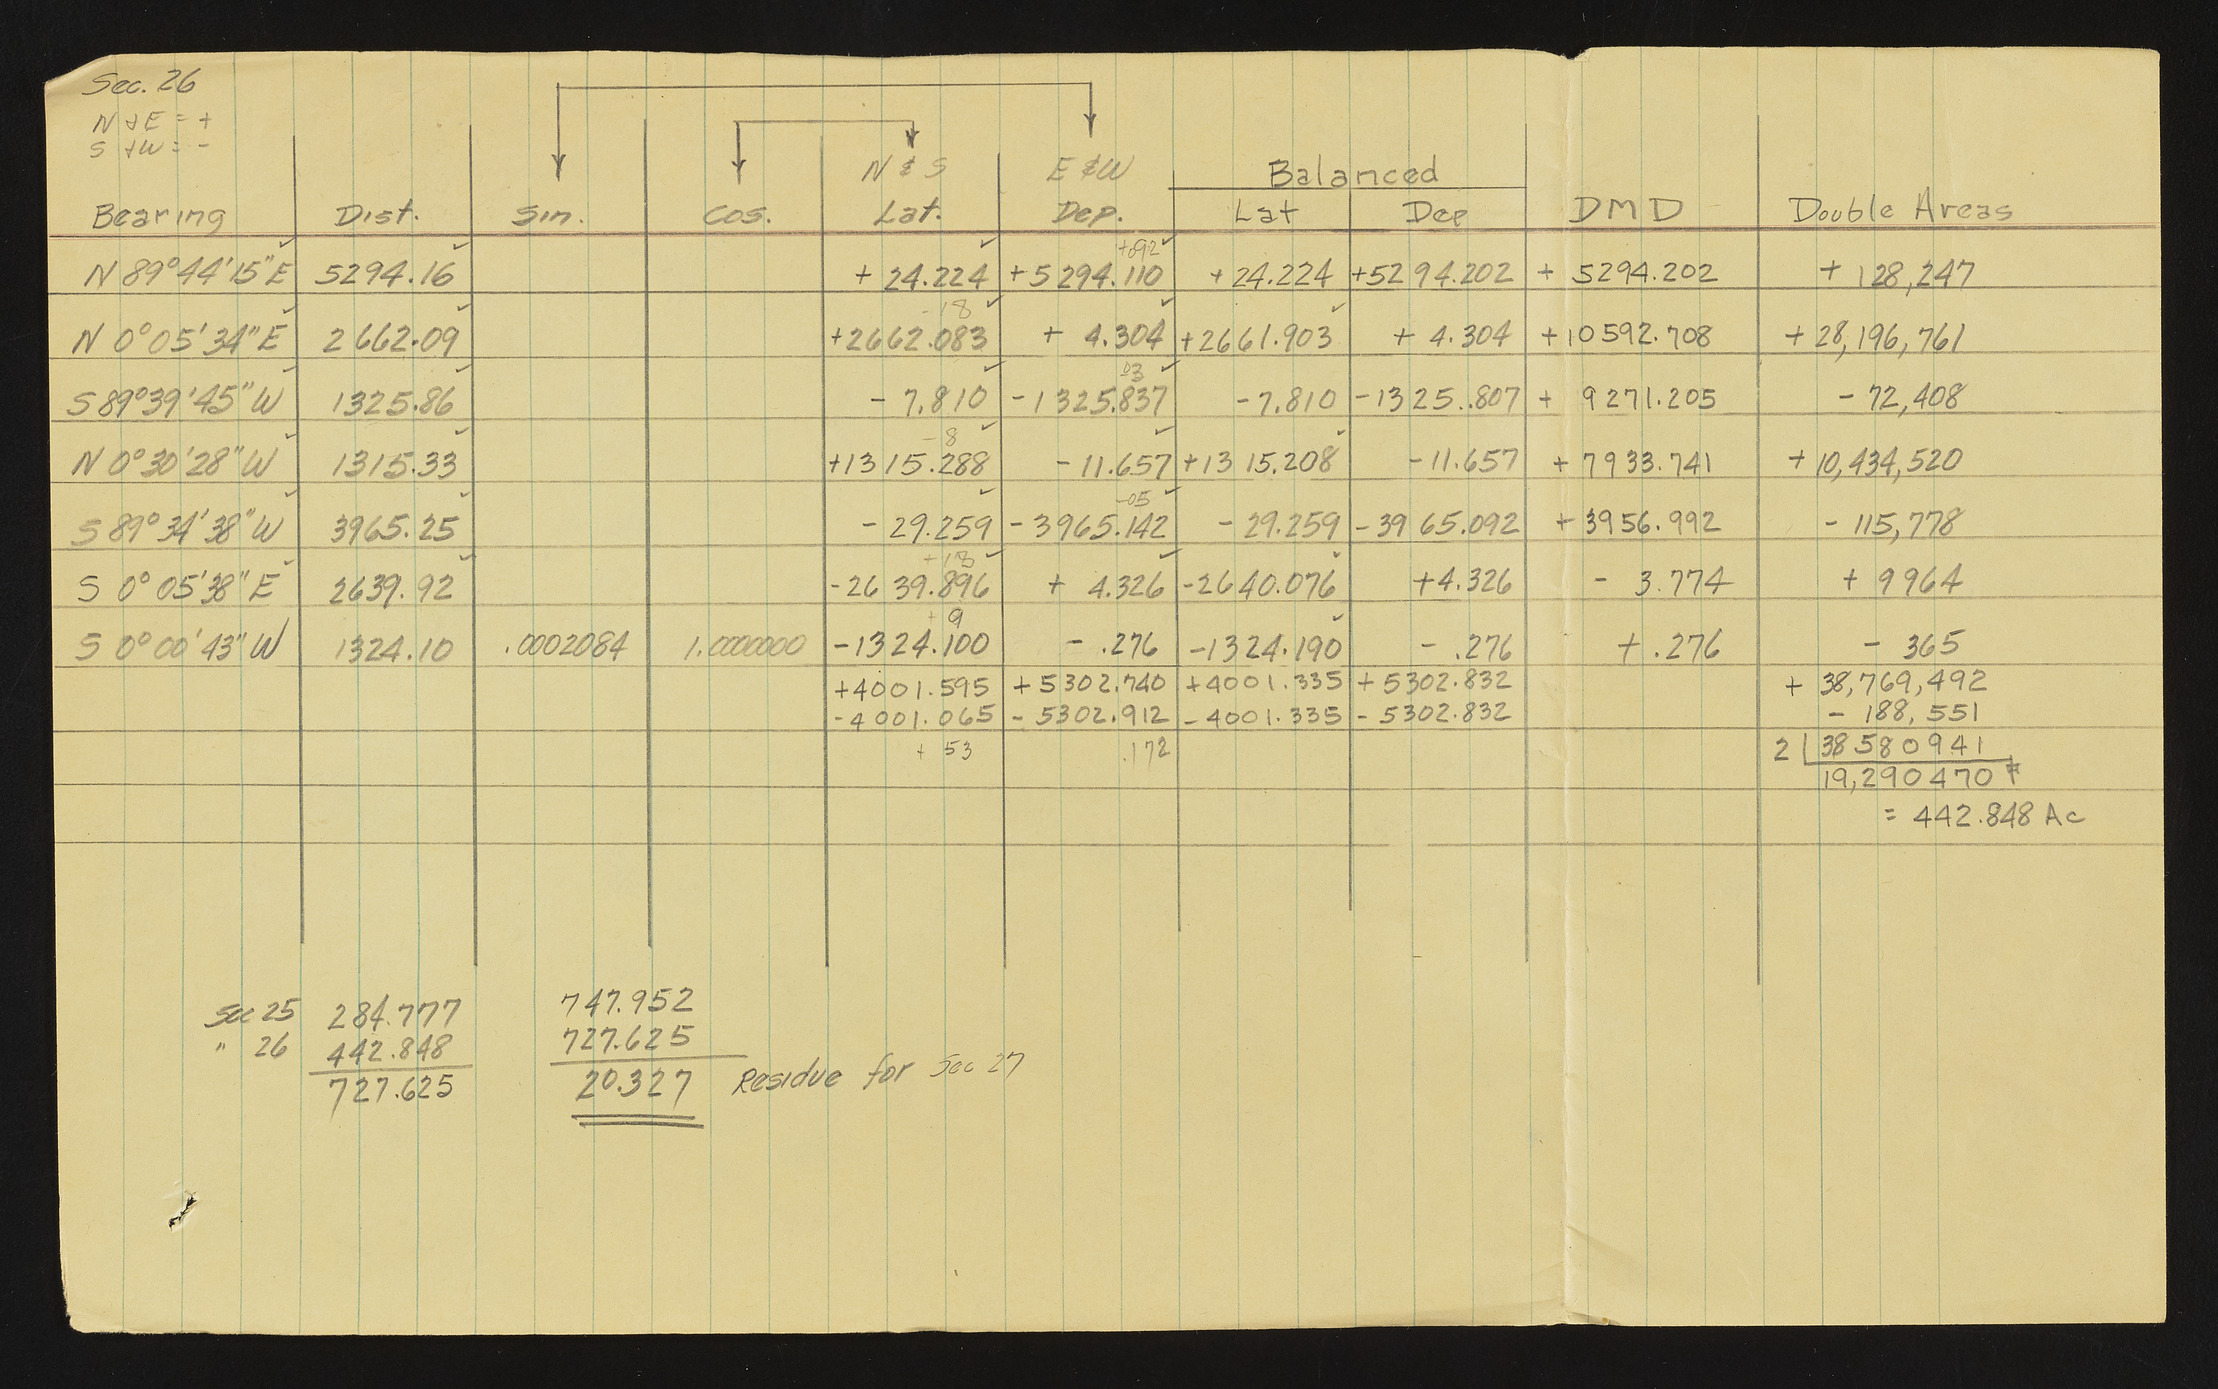 Sec. 26
N & E = +
S & W = -
N & S E & W Balanced
Bearing Dist. Sin. Cos. Lat. Dep. Lat Dep DMD Double Areas
+.092
N 89°44'15" E 5294.16 + 24.224 + 5294.110 + 24.224 + 5294.202 + 5294.202 + 128,247
- 18
N 0°05'34" E 2662.09 + 2662.083 + 4.304 + 2661.903 + 4.304 + 10592.708 + 28,196,761
03
S 89°39'45" W 1325.86 - 7.810 - 1325.837 - 7.810 - 1325.807 + 9271.205 - 72,408
- 8
N 0°30'28" W 1315.33 + 1315.288 - 11.657 + 1315.208 - 11.657 + 7933.741 + 10,434,520
-05
S 89°34'38" W 3965.25 - 29.259 - 3965.142 - 29.259 - 3965.092 + 3956.992 - 115,778
+ 18
S 0°05'38" E 2639.92 - 2639.896 + 4.326 - 2640.076 + 4.326 - 3.774 + 9964
+ 9
S 0°00'43" W 1324.10 .0002084 1.0000000 - 1324.100 - .276 - 1324.190 - .276 + .276 - 365
+ 4001.595 + 5302.740 + 4001.335 + 5302.832 + 38,769,492
- 4001.065 - 5302.912 - 4001.335 - 5302.832 - 188,551
+ 53 .172 2 | 38580941
19,290470
= 442.848 Ac
Sec 25 284.777 747.952
" 26 442.848 727.625
727.625 20.327 Residue for Sec 27